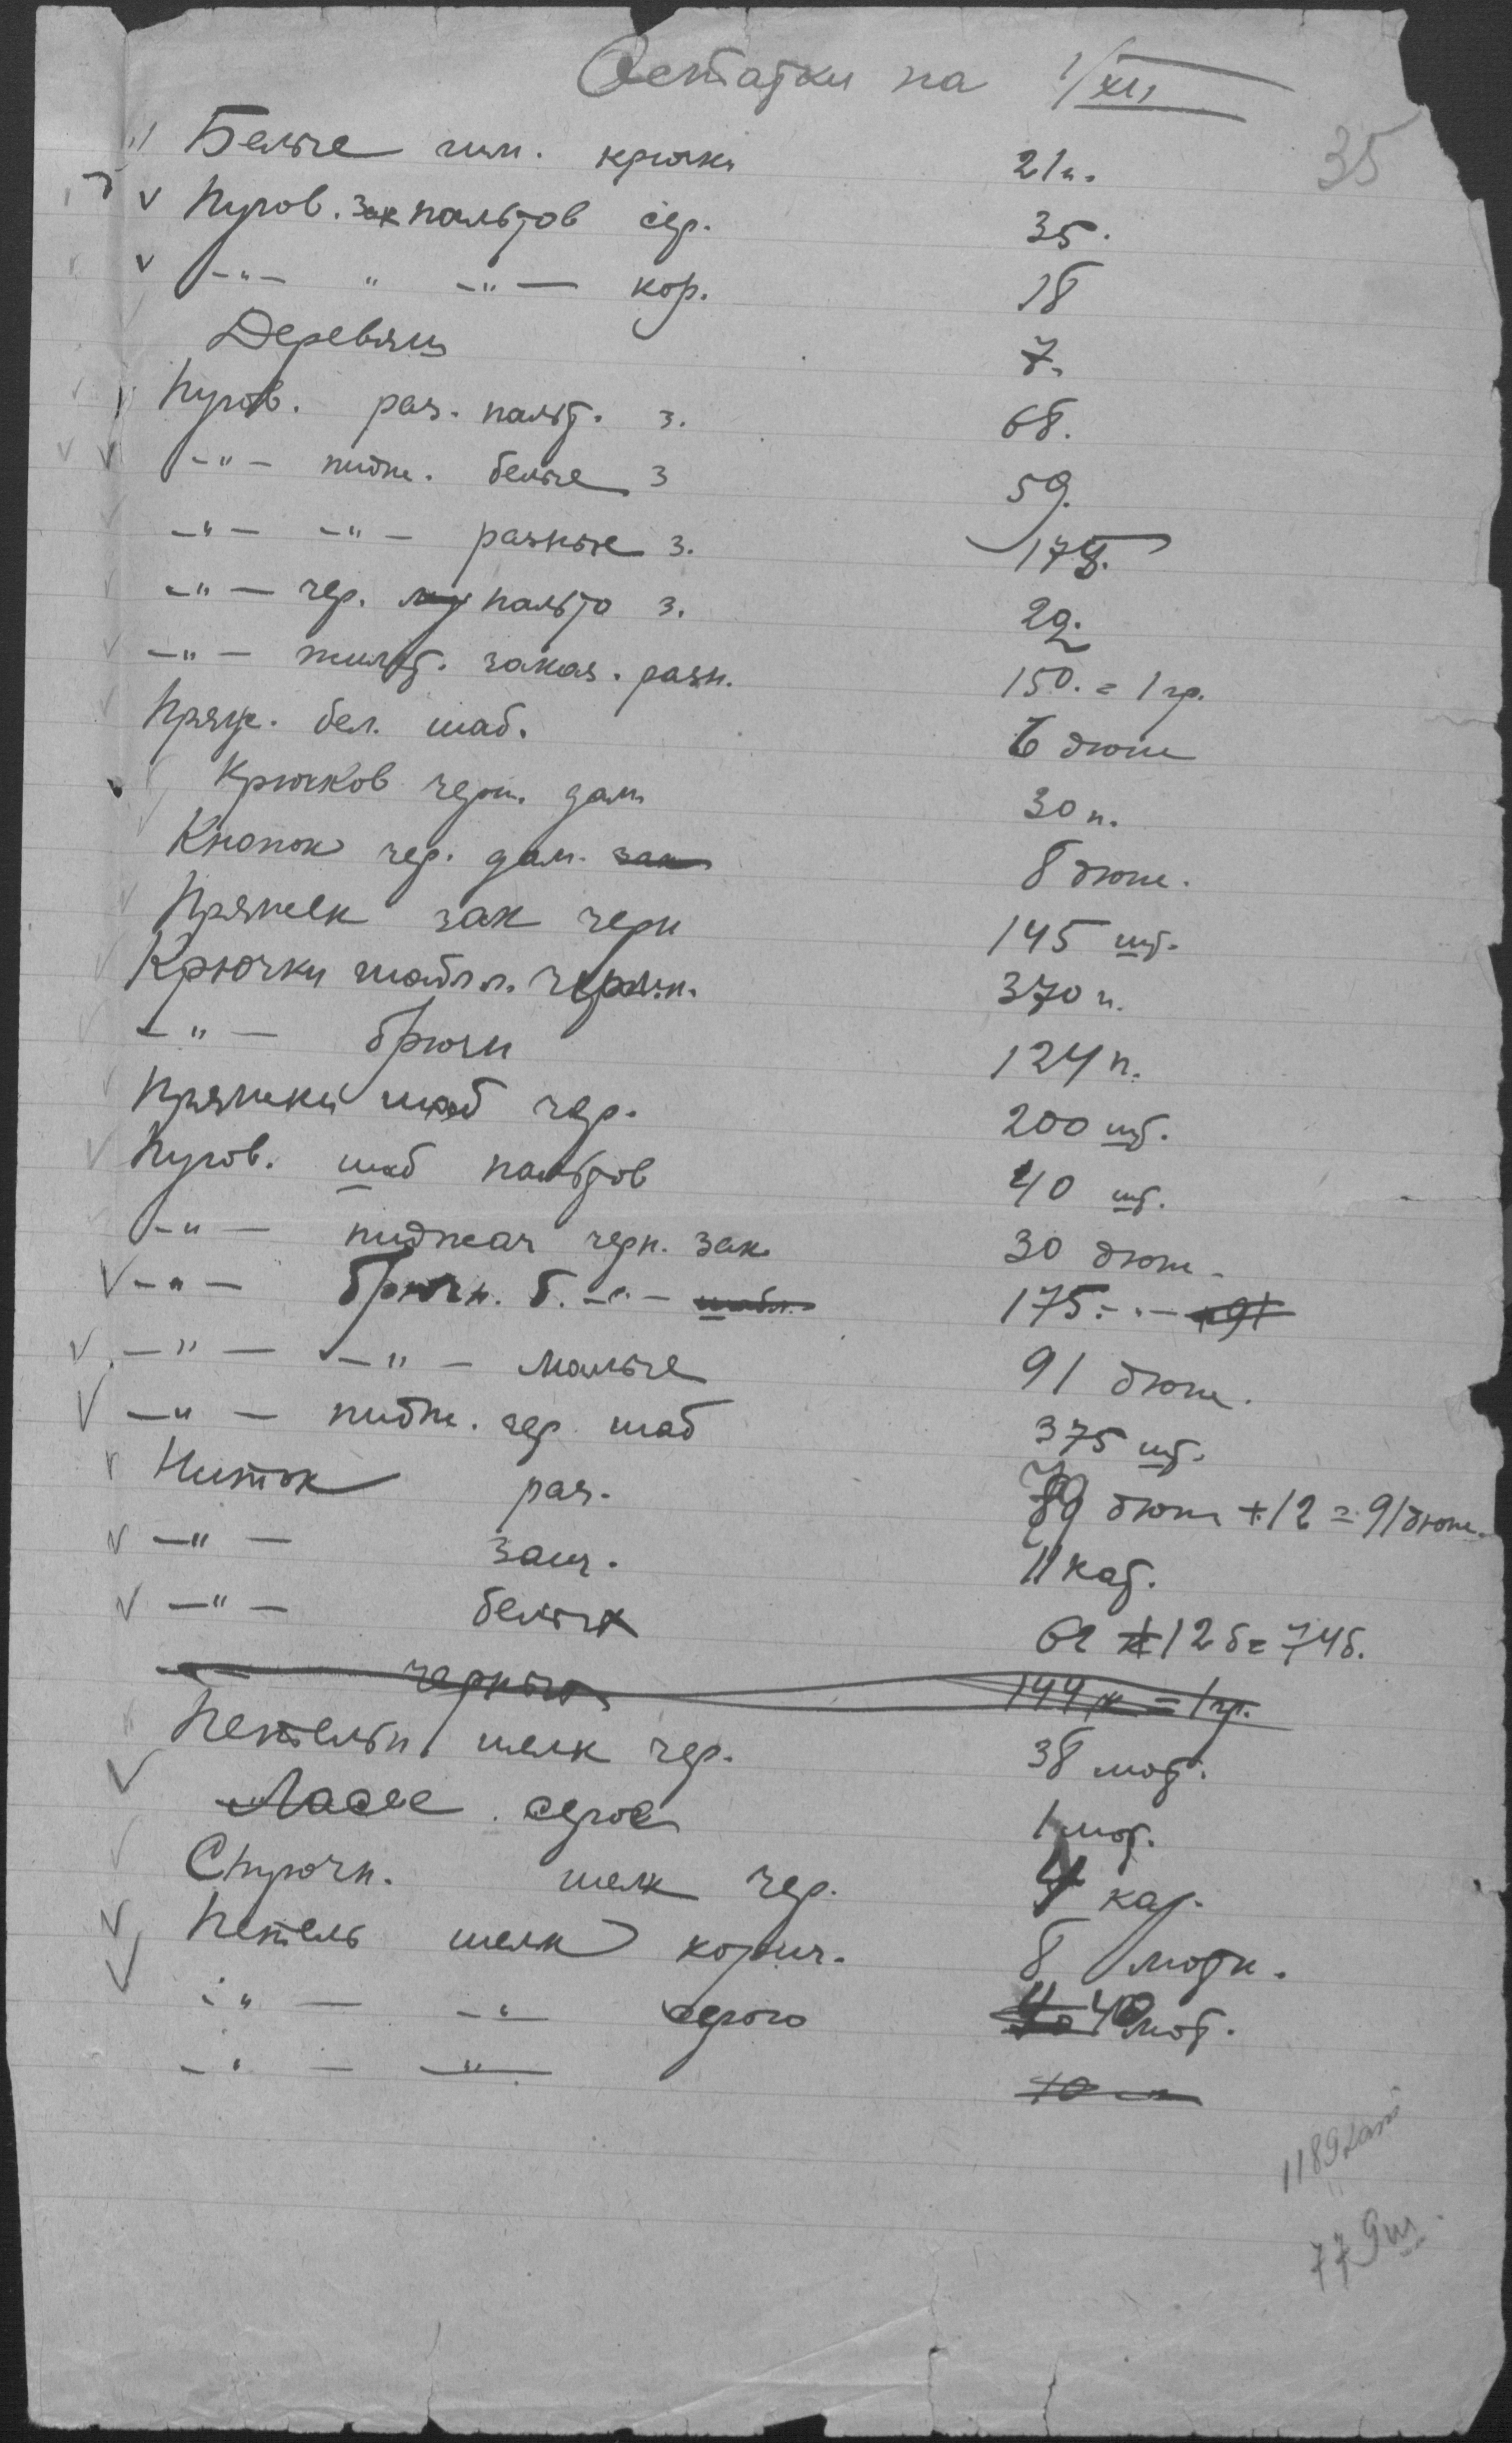 Остатки на 1/XII
35
Белые гим. крючки 21 п.
Пугов. зак пальтов сер. 35.
-"- " -"- кор. 18
Деревян 7.
Пугов. раз. пальт. з. 68.
-"- пидж. белые з 59.
-"- -"- разные з. 175.
-"- чер. пальто з. 29.
-"- жилет. заказ. разн. 150. = 1 гр.
Пряж. бел. шаб. 6 дюж
Крючков черн. дам 30 п.
Кнопок чер. дам. зак 8 дюж.
Пряжек зак черн 145 шт.
Крючки шабл. черн. 370 п.
-"- брючн 124 п.
Пряжки шаб чер. 200 шт.
Пугов. шаб пальтов 40 шт.
-"- пиджач черн. зак 30 дюж.
-"- брючн. б. -"- шабл. 175 -"- 91
-"- -"- малые 91 дюж.
-"- пидж. чер шаб 375 шт.
Ниток раз. 79 дюж + 12 = 91 дюж.
-"- 11 кат.
-"- белых 62 + 12 б = 74 б.
черных 144 к = 1 гр.
Петельн шелк чер. 38 мот.
серое 1 мот.
Строчн. шелк чер. 4 кат.
Петель шелк корич. 8 мотк.
-"- -"- серого 40 мот.
-"- -"- 10
1189
779 ш.